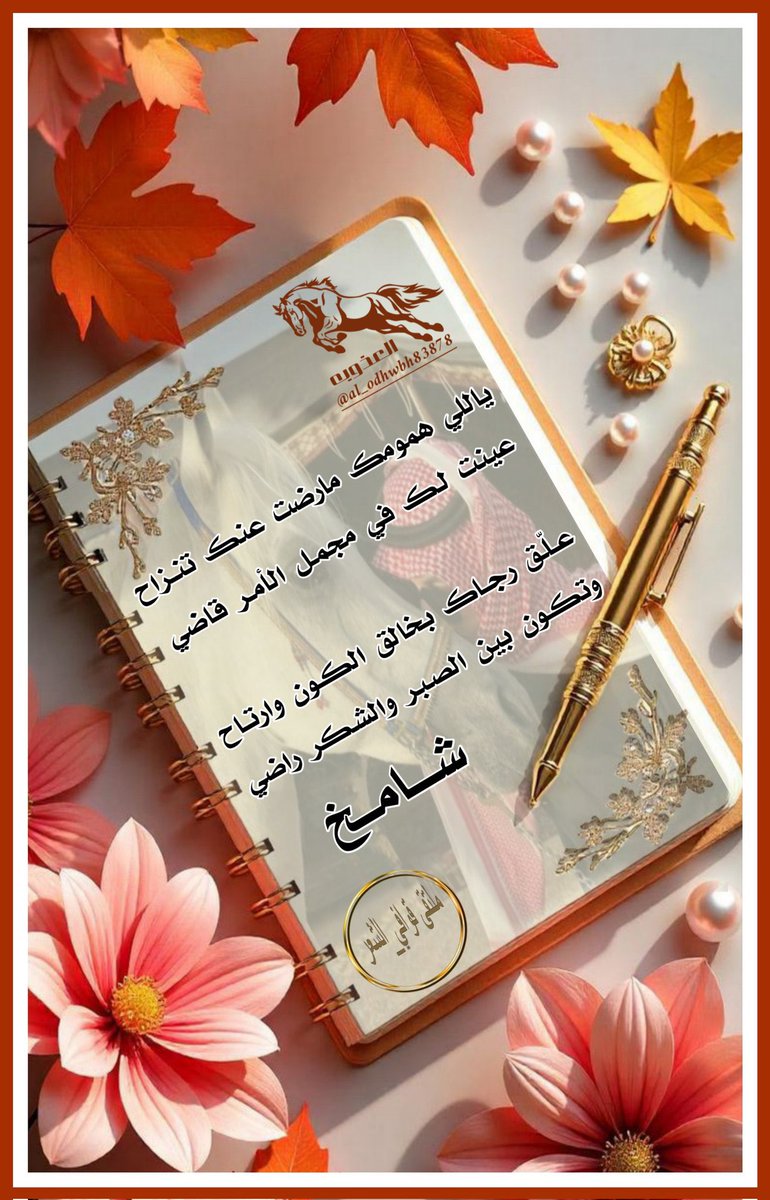 العذوبه
@al_odhwbh83878
ياللي همومك مارضت عنك تنـزاح
عينت لك في مجمل الأمر قاضي
علّق رجاك بخالق الكون وارتاح
وتكون بين الصبر والشكر راضي
شـــامــخ
ملتقى قوافي الشعر